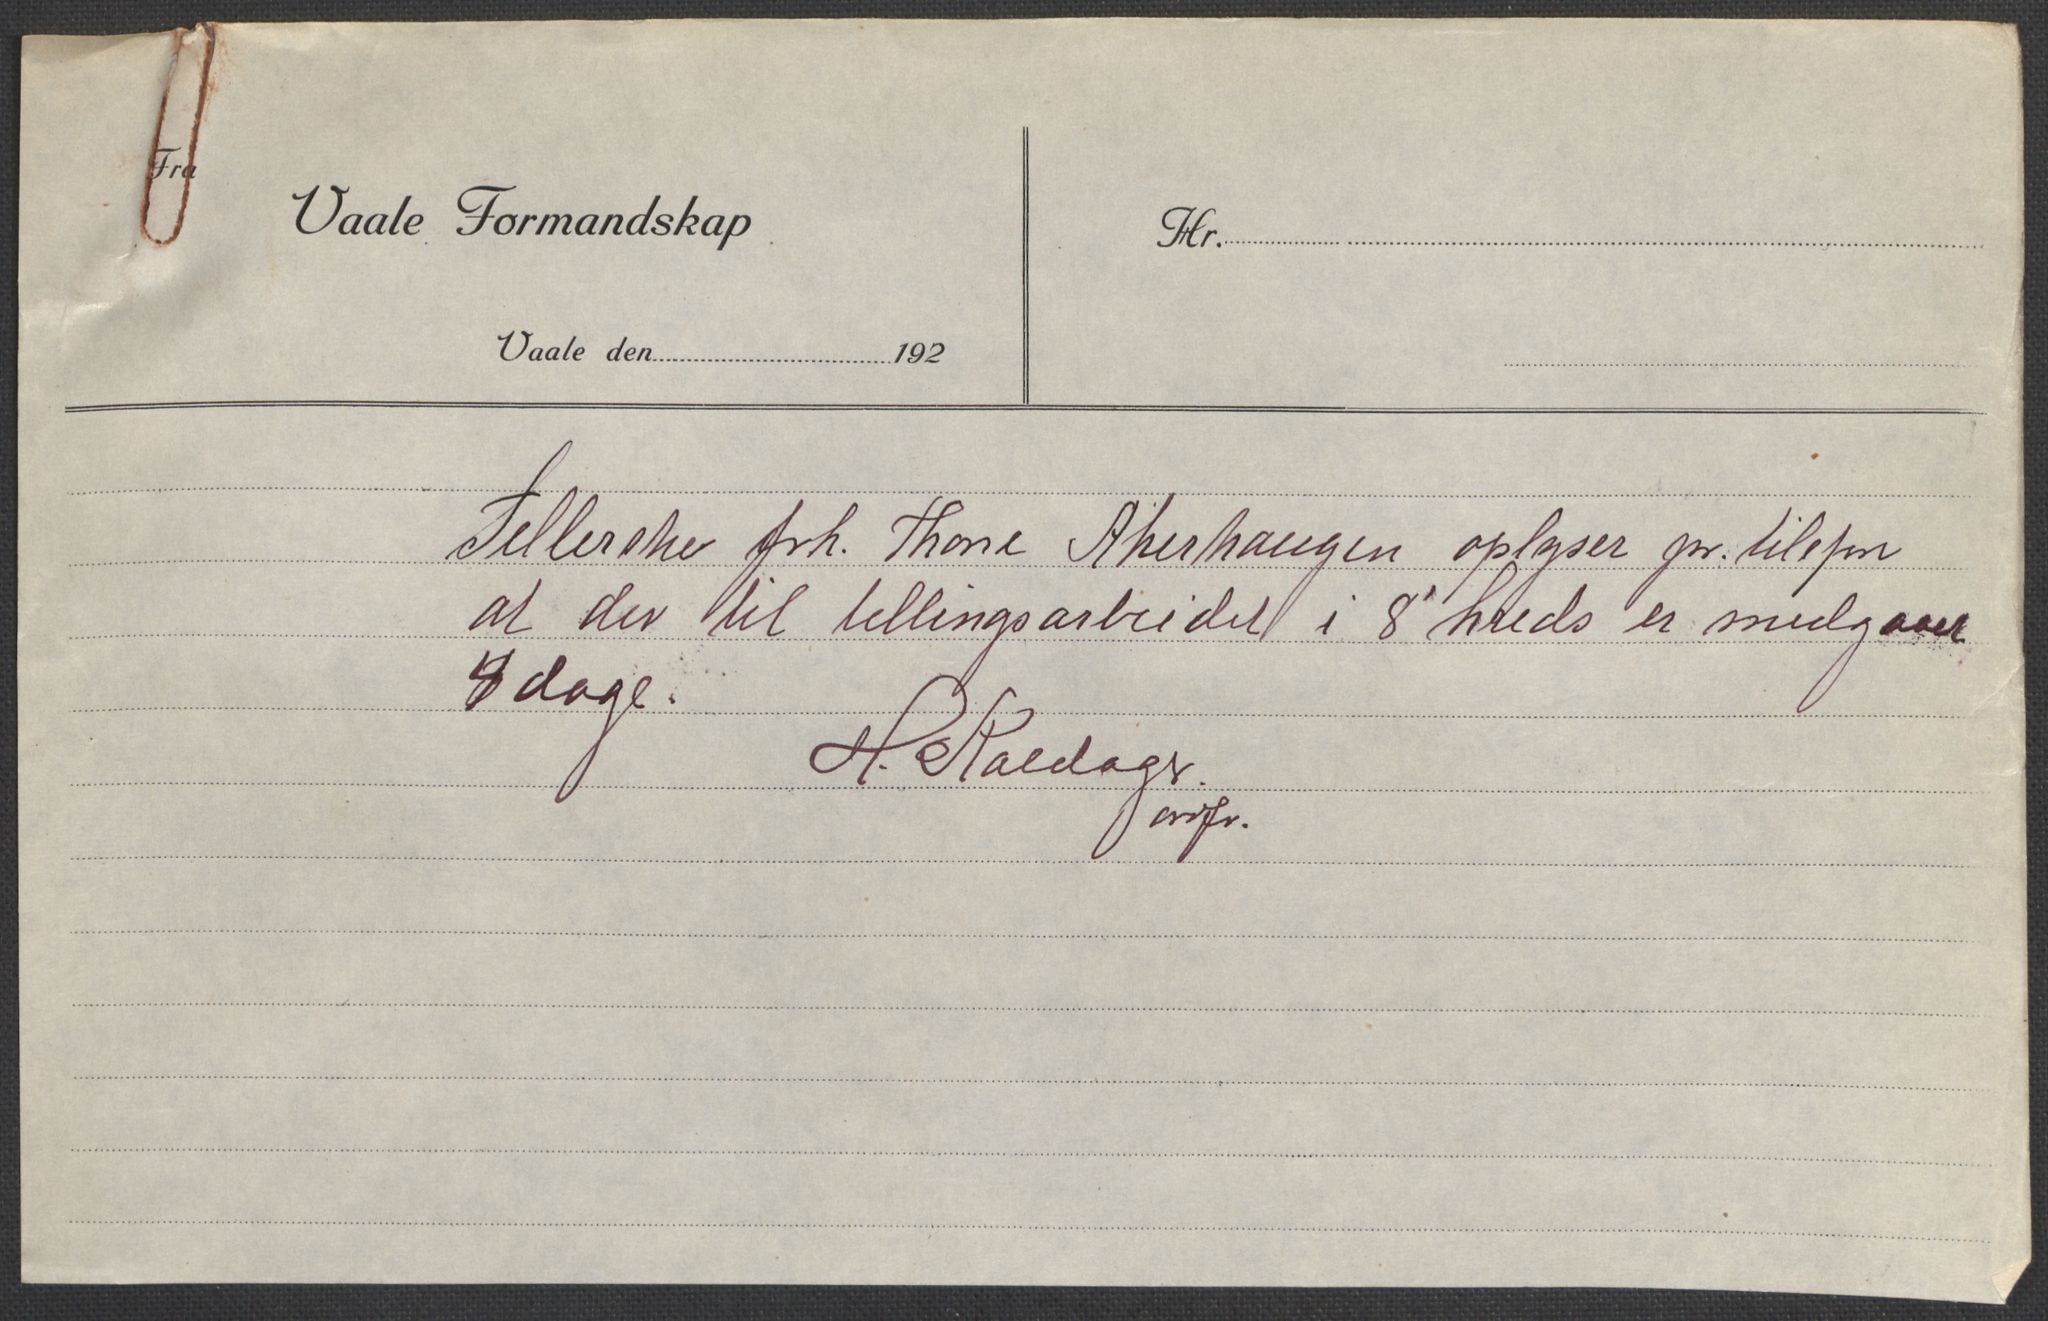 Fra
Vaale Formandskap
Hr.
Vaale den 192
Tellerske frk. Thone Akerhaugen oplyser pr. telefon
at der til tellingsarbeidet i 8' kreds er medgaaet
8 dage.
H.
ordf.